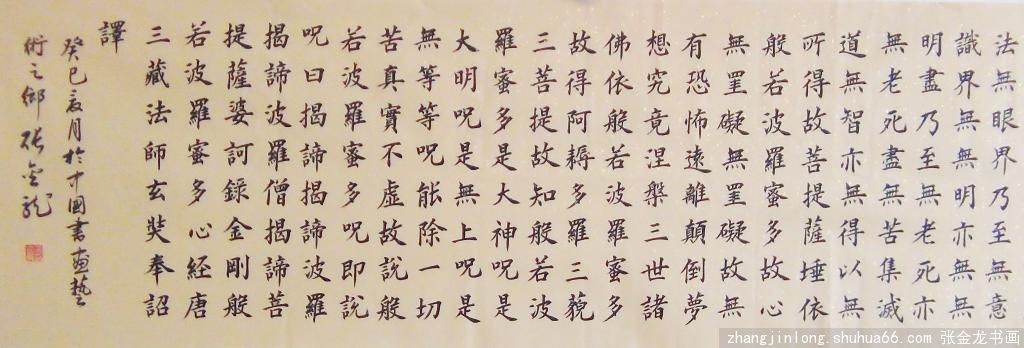 法無眼界乃至無意
識界無無明亦無無
明盡乃至無老死亦
無老死盡無苦集滅
道無智亦無得以無
所得故菩提薩埵依
般若波羅蜜多故心
無罣礙無罣礙故無
有恐怖遠離顛倒夢
想究竟涅槃三世諸
佛依般若波羅蜜多
故得阿耨多羅三藐
三菩提故知般若波
羅蜜多是大神呪是
大明呪是無上呪是
無等等呪能除一切
苦真實不虛故說般
若波羅蜜多呪即說
呪曰揭諦揭諦波羅
揭諦波羅僧揭諦菩
提薩婆訶錄金剛般
若波羅蜜多心経唐
三藏法師玄奘奉詔
譯
癸巳夏月於中國書畫藝
術之鄉張金龍
zhangjinlong.shuhua66.com 张金龙书画